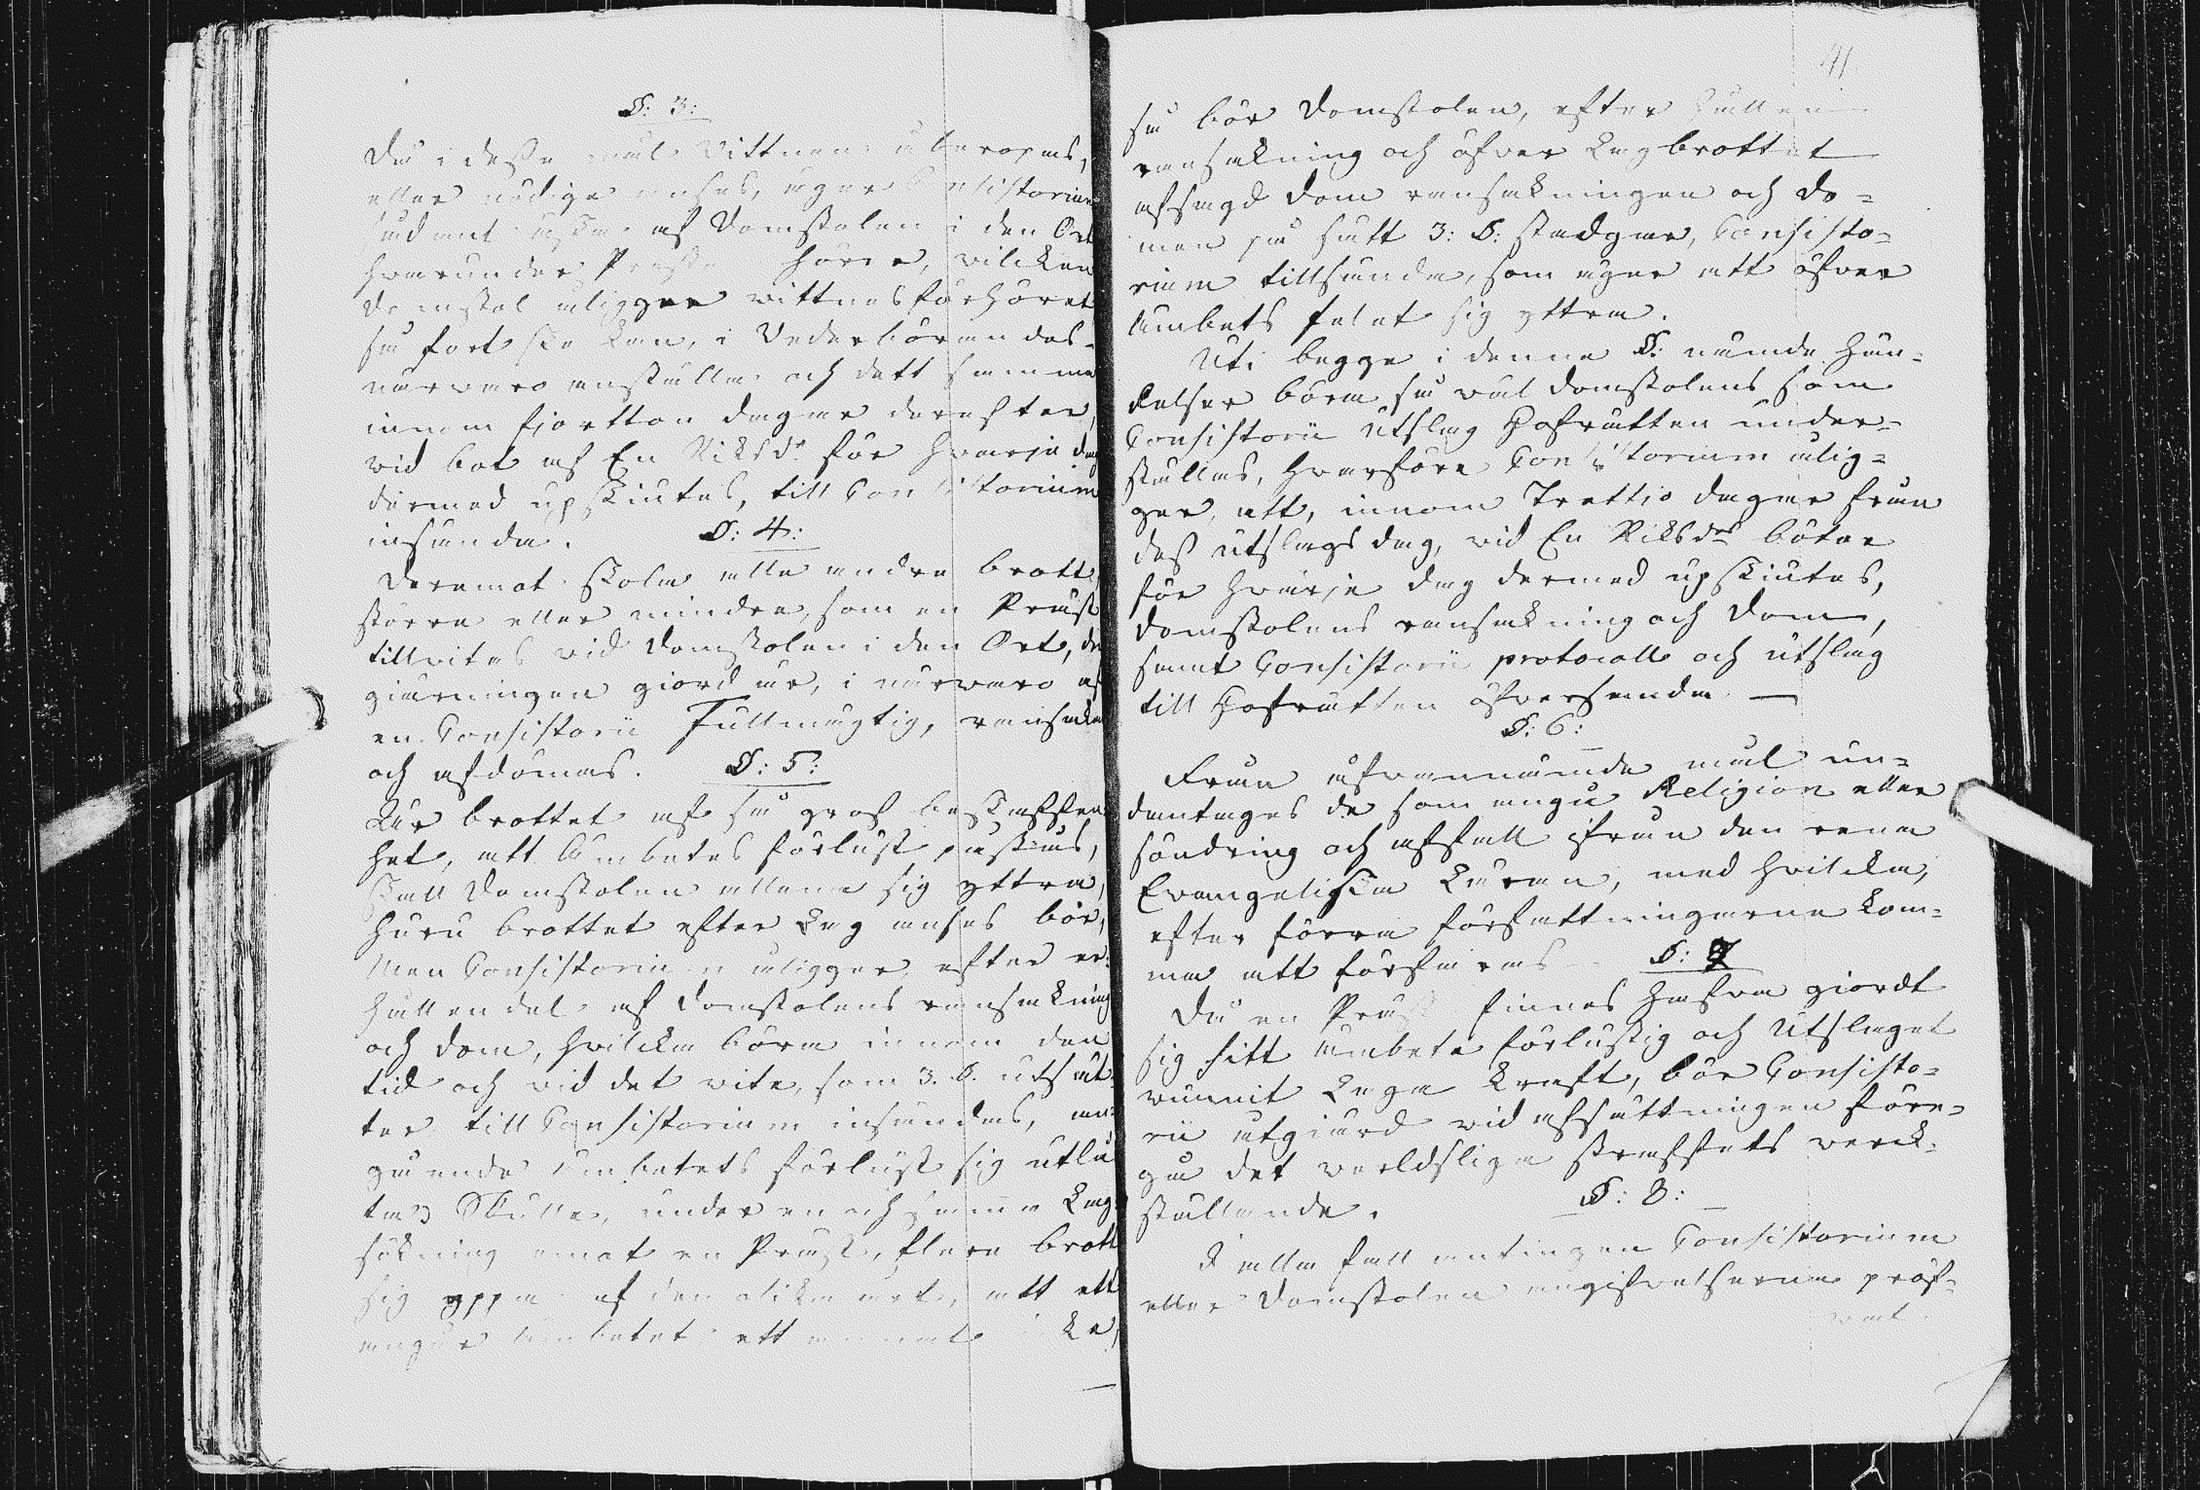 §: 3:
Då i dessa mål Vittnen åberopas,
eller nödige anses, äger Consistorium
sådant äska af Domstolen i den Ort
hvarunder Prästen hörer, vilcken
domstol åligger vittnesförhöret
så fort ske kan, i Vederbörandes
närvaro anställa och dett samma
innom fjortton dagar derefter,
vid bot af En Riksdr för hvarje dag
därmed upskiutes, till Consistorium
insända.
§: 4:
Deremot skola alla andra brott
större eller mindre, som en Präst
tillvites vid Domstolen i den Ort, der
giärningen giord är, i närvaro af
en Consistorii Fullmägtig, ransakas
och afdömas.
§: 5:
Är brottet af så grof beskaffen
het, att Ämbetes förlust påstås,
skall Domstolen allena sig yttra,
huru brottet efter Lag anses bör,
Men Consistorium åligger, efter er¬
hållen del af Domstolens ransakning
och dom, hvilcka böra innom den
tid och vid det vite, som 3. §. utsät¬
ter till Consistorium insändas, an¬
gående ämbetets förlust sig utlå
ta, Skulle, under en och samma Lag
sökning emot en Präst, flera brott
sig yppa af den olika art, att ett
angår ämbetet ett annat icke,
41
så bör Domstolen, efter hållen
ransakning och öfver Lagbrottet
afsagd dom ransakningen och do¬
men på sätt 3: §: stadgar, Consisto¬
rium tillsända, som äger att öfver
ämbets felet sig yttra.
Uti begge i denne §: nämde hän¬
delser böra så väl domstolens som
Consistorii Utslag Hofrätten under¬
ställas, hvarföre Consistorium ålig¬
ger, att, innom Trettio dagar från
dess utslags dag, vid En Riksdrs böter
för hvarje dag dermed upskiutes,
Domstolens ransakning och Dom,
samt Consistorii protocoll och utslag
till Hofrätten öfversända
§: 6:
Från ofvannämde mål un¬
dantages de som angå Religion eller
söndring och affall ifrån den rena
Evangeliska Läran, med hvilcka,
efter förra författningarne kom¬
ma att förfaras
§: 7
Då en Präst finnes hafva giordt
sig sitt ämbete förlustig och Utslaget
vunnit Laga kraft, bör Consisto¬
rii utgiärd vid afsättningen före¬
gå det verldsliga straffets verck¬
ställande.
§: 8:
I alla fall antingen Consistorium
eller Domstolen angifvelserne pröf¬
vat